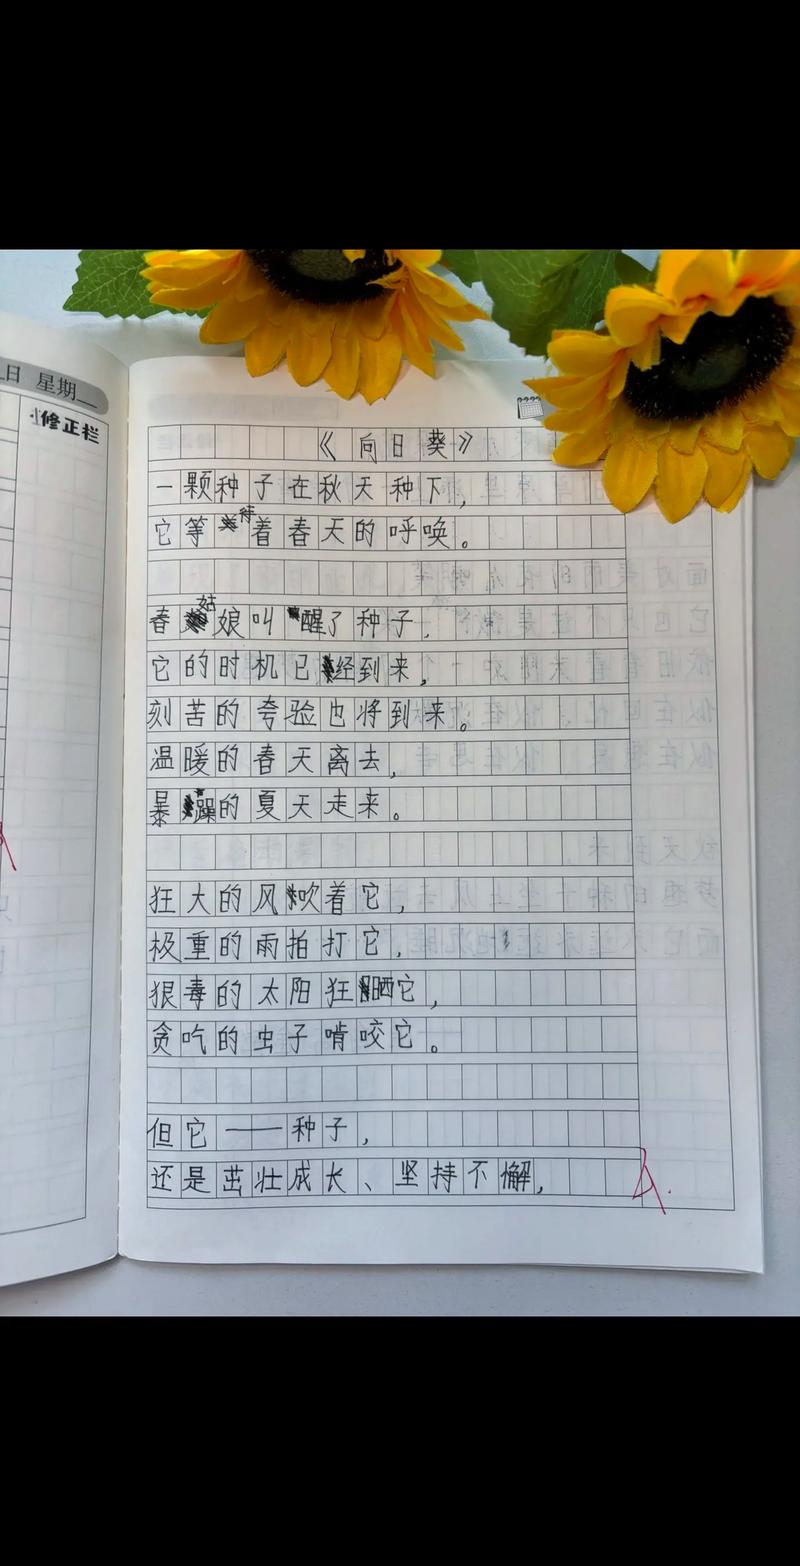 日 星期
修正栏
《向日葵》
一颗种子在秋天种下,
它等待着春天的呼唤。
春姑娘叫醒了种子,
它的时机已经到来,
刻苦的夸验也将到来。
温暖的春天离去,
暴躁的夏天走来。
狂大的风吹着它,
极重的雨拍打它,
狠毒的太阳狂晒它,
贪吃的虫子啃咬它。
但它——种子,
还是茁壮成长、坚持不懈,